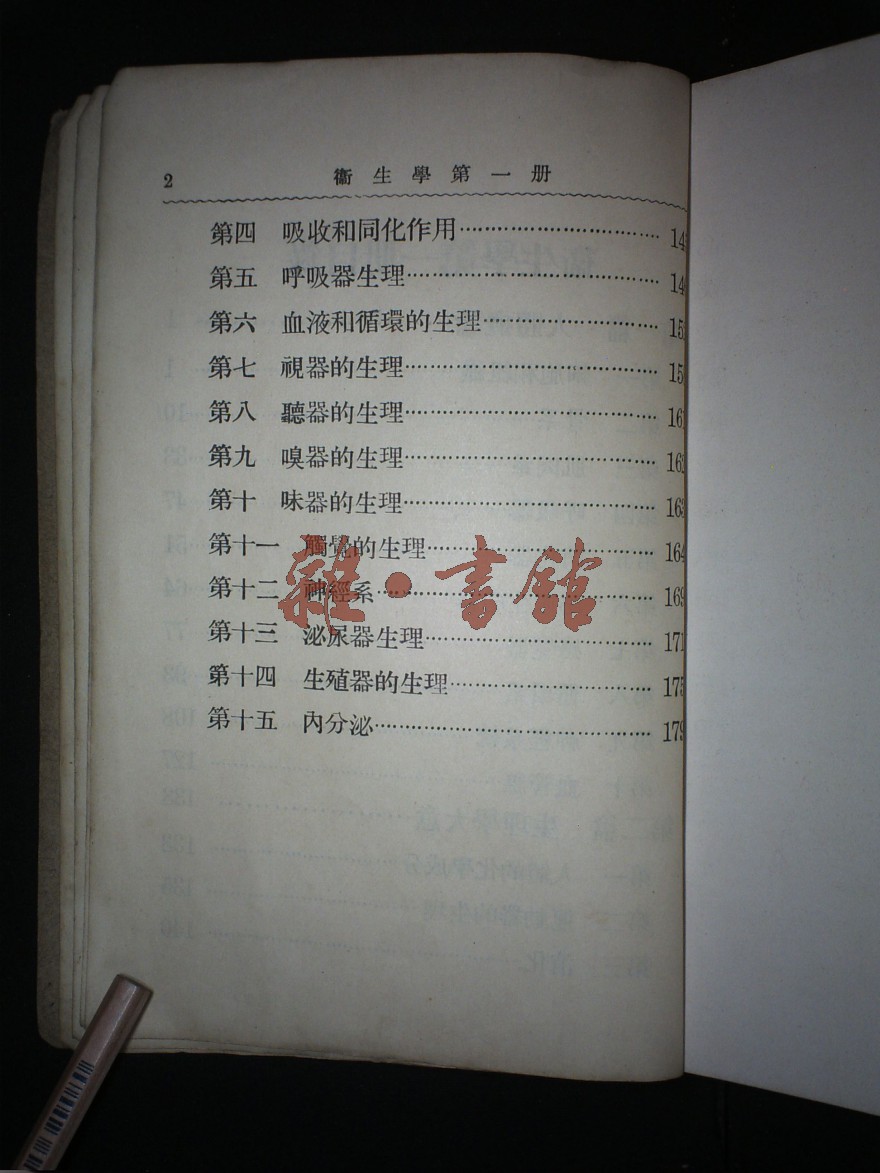 2 衞生學第一册
第四 吸收和同化作用 14
第五 呼吸器生理 14
第六 血液和循環的生理 15
第七 視器的生理 15
第八 聽器的生理 161
第九 嗅器的生理 162
第十 味器的生理 163
第十一 觸覺的生理 164
第十二 神經系 169
第十三 泌尿器生理 171
第十四 生殖器的生理 175
第十五 內分泌 179
雜·書館